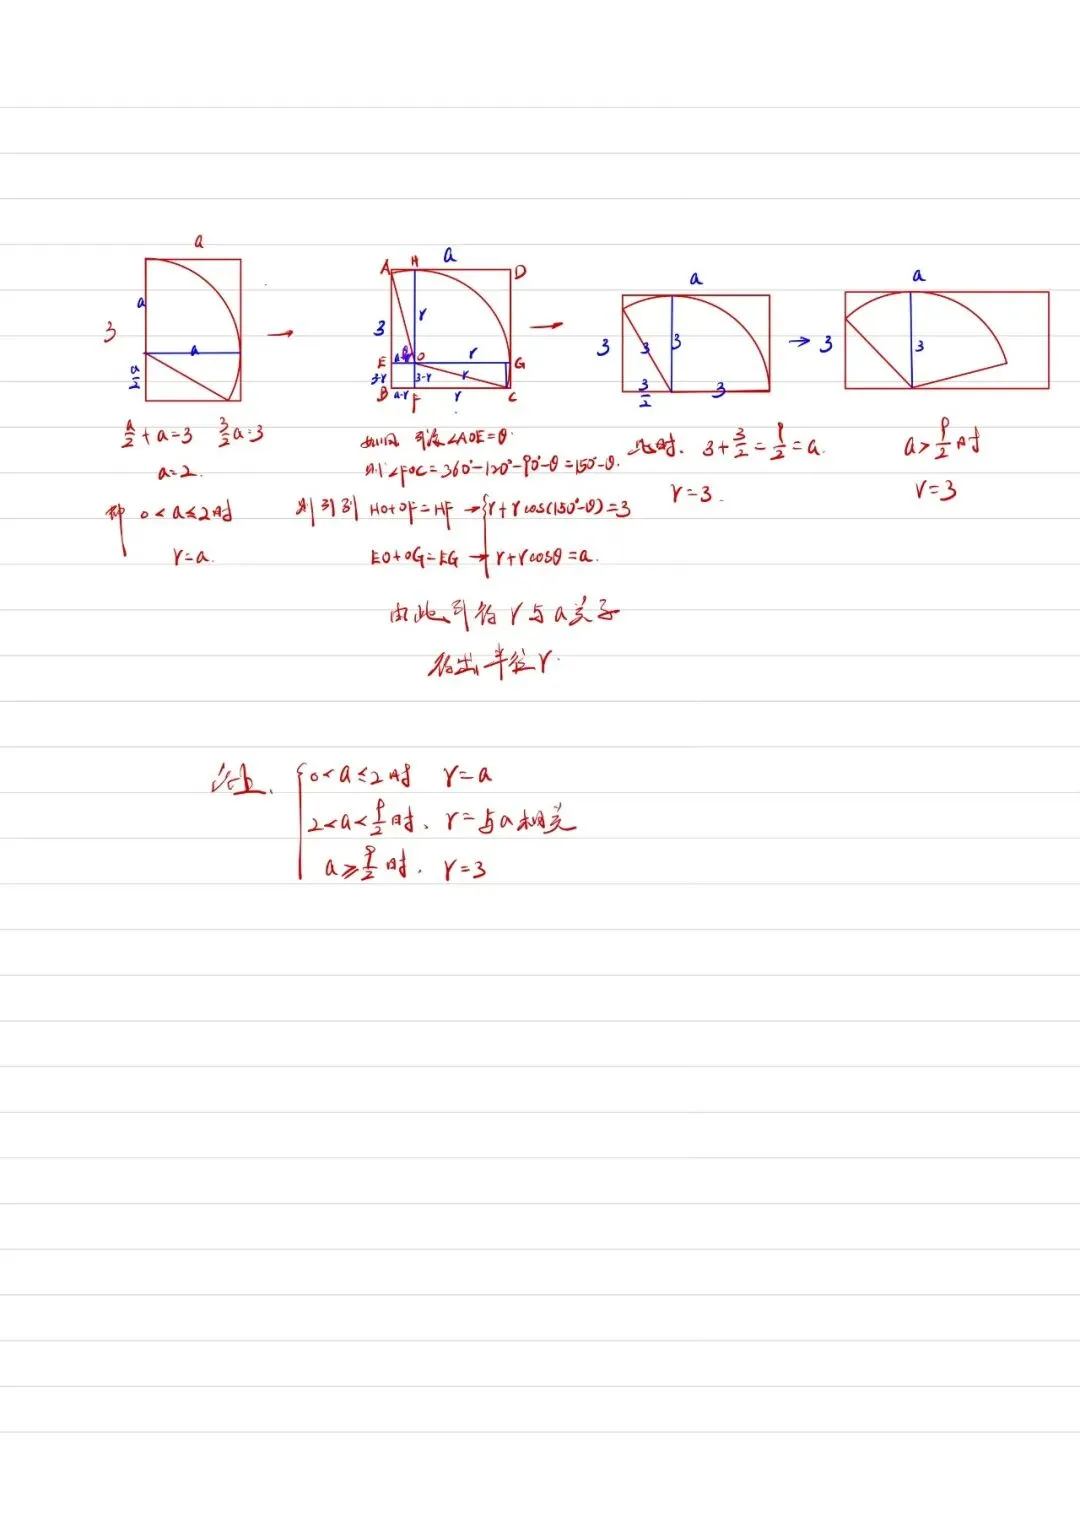 a
3
a
a
a/2
a/2 + a = 3   3/2 a = 3
a = 2.
即 0 < a ≤ 2 时
r = a.
A H a D
3 r
E θ O r G
3-r a-r 3-r r
B a-r F r C
如图 可设∠AOE = θ.
则∠FOC = 360° - 120° - 90° - θ = 150° - θ.
则可列 HO + OF = HF → { r + r cos(150° - θ) = 3
EO + OG = EG → r + r cosθ = a.
由此可得 r 与 a 关系
得出半径 r.
a
3 3 3
3/2 3
此时. 3 + 3/2 = 9/2 = a.
r = 3.
a
3 3
a > 9/2 时
r = 3
综上. { 0 < a ≤ 2 时 r = a
2 < a < 9/2 时. r = 与 a 相关
a ≥ 9/2 时. r = 3